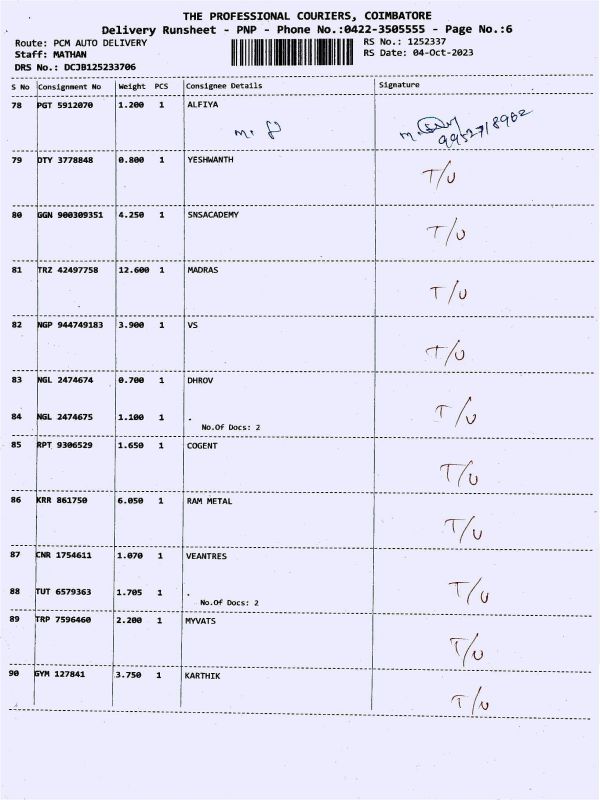 THE PROFESSIONAL COURIERS, COIMBATORE
Delivery Runsheet - PNP - Phone No.:0422-3505555 - Page No.:6
Route: PCM AUTO DELIVERY RS No.: 1252337
Staff: MATHAN RS Date: 04-Oct-2023
DRS No.: DCJB125233706
S No Consignment No Weight PCS Consignee Details Signature
78 PGT 5912070 1.200 1 ALFIYA
9952718902
79 DTY 3778848 0.800 1 YESHWANTH
T/U
80 GGN 900309351 4.250 1 SNSACADEMY
T/U
81 TRZ 42497758 12.600 1 MADRAS
T/U
82 NGP 944749183 3.900 1 VS
T/U
83 NGL 2474674 0.700 1 DHROV
84 NGL 2474675 1.100 1 .
T/U
No.Of Docs: 2
85 RPT 9306529 1.650 1 COGENT
T/U
86 KRR 861750 6.050 1 RAM METAL
T/U
87 CNR 1754611 1.070 1 VEANTRES
88 TUT 6579363 1.705 1 .
T/U
No.Of Docs: 2
89 TRP 7596460 2.200 1 MYVATS
T/U
90 GYM 127841 3.750 1 KARTHIK
T/U